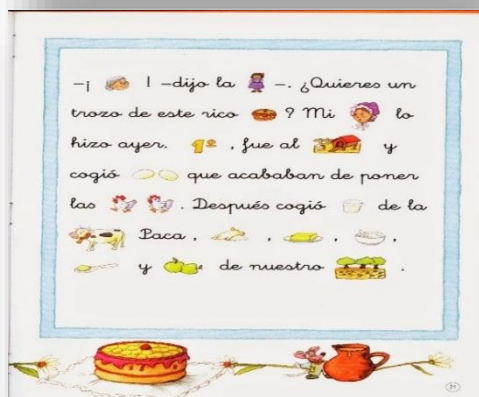 -¡ ! -dijo la -. ¿Quieres un
trozo de este rico ? Mi lo
hizo ayer. 1º , fue al y
cogió que acababan de poner
las . Después cogió de la
Paca , , , ,
y de nuestro .